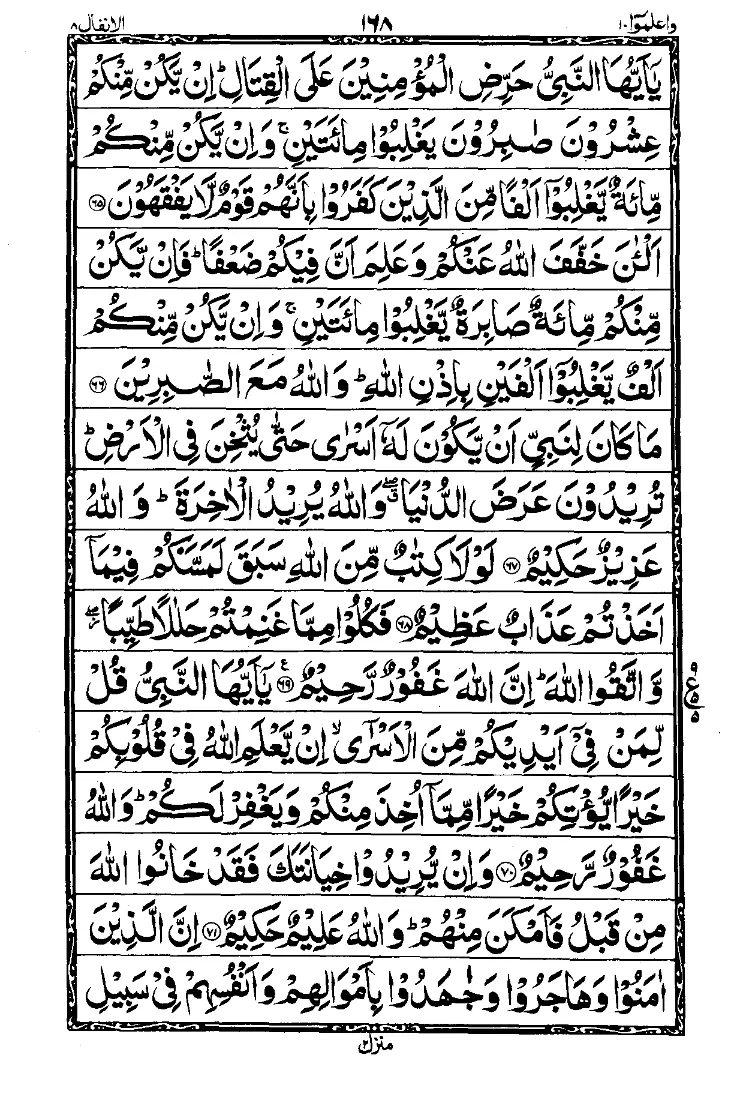 واعلموا۱۰ ۱۶۸ الانفال۸
يٰۤاَيُّهَا النَّبِىُّ حَرِّضِ الْمُؤْمِنِيْنَ عَلَى الْقِتَالِ ؕ اِنْ يَّكُنْ مِّنْكُمْ
عِشْرُوْنَ صٰبِرُوْنَ يَغْلِبُوْا مِائَتَيْنِ ۚ وَاِنْ يَّكُنْ مِّنْكُمْ
مِّائَةٌ يَّغْلِبُوْۤا اَلْفًا مِّنَ الَّذِيْنَ كَفَرُوْا بِاَنَّهُمْ قَوْمٌ لَّا يَفْقَهُوْنَ ۶۵
اَلْـٰٔنَ خَفَّفَ اللّٰهُ عَنْكُمْ وَعَلِمَ اَنَّ فِيْكُمْ ضَعْفًا ؕ فَاِنْ يَّكُنْ
مِّنْكُمْ مِّائَةٌ صَابِرَةٌ يَّغْلِبُوْا مِائَتَيْنِ ۚ وَاِنْ يَّكُنْ مِّنْكُمْ
اَلْفٌ يَّغْلِبُوْۤا اَلْفَيْنِ بِاِذْنِ اللّٰهِ ؕ وَاللّٰهُ مَعَ الصّٰبِرِيْنَ ۶۶
مَا كَانَ لِنَبِىٍّ اَنْ يَّكُوْنَ لَهٗۤ اَسْرٰى حَتّٰى يُثْخِنَ فِى الْاَرْضِ ؕ
تُرِيْدُوْنَ عَرَضَ الدُّنْيَا ۖۗ وَاللّٰهُ يُرِيْدُ الْاٰخِرَةَ ؕ وَاللّٰهُ
عَزِيْزٌ حَكِيْمٌ ۶۷ لَوْلَا كِتٰبٌ مِّنَ اللّٰهِ سَبَقَ لَمَسَّكُمْ فِيْمَاۤ
اَخَذْتُمْ عَذَابٌ عَظِيْمٌ ۶۸ فَكُلُوْا مِمَّا غَنِمْتُمْ حَلٰلًا طَيِّبًا ۖ
وَّاتَّقُوا اللّٰهَ ؕ اِنَّ اللّٰهَ غَفُوْرٌ رَّحِيْمٌ ۶۹ ع يٰۤاَيُّهَا النَّبِىُّ قُلْ
لِّمَنْ فِىْۤ اَيْدِيْكُمْ مِّنَ الْاَسْرٰٓى ۙ اِنْ يَّعْلَمِ اللّٰهُ فِىْ قُلُوْبِكُمْ
خَيْرًا يُّؤْتِكُمْ خَيْرًا مِّمَّاۤ اُخِذَ مِنْكُمْ وَيَغْفِرْ لَكُمْ ؕ وَاللّٰهُ
غَفُوْرٌ رَّحِيْمٌ ۷۰ وَاِنْ يُّرِيْدُوْا خِيَانَتَكَ فَقَدْ خَانُوا اللّٰهَ
مِنْ قَبْلُ فَاَمْكَنَ مِنْهُمْ ؕ وَاللّٰهُ عَلِيْمٌ حَكِيْمٌ ۷۱ اِنَّ الَّذِيْنَ
اٰمَنُوْا وَهَاجَرُوْا وَجٰهَدُوْا بِاَمْوَالِهِمْ وَاَنْفُسِهِمْ فِىْ سَبِيْلِ
منزل۲